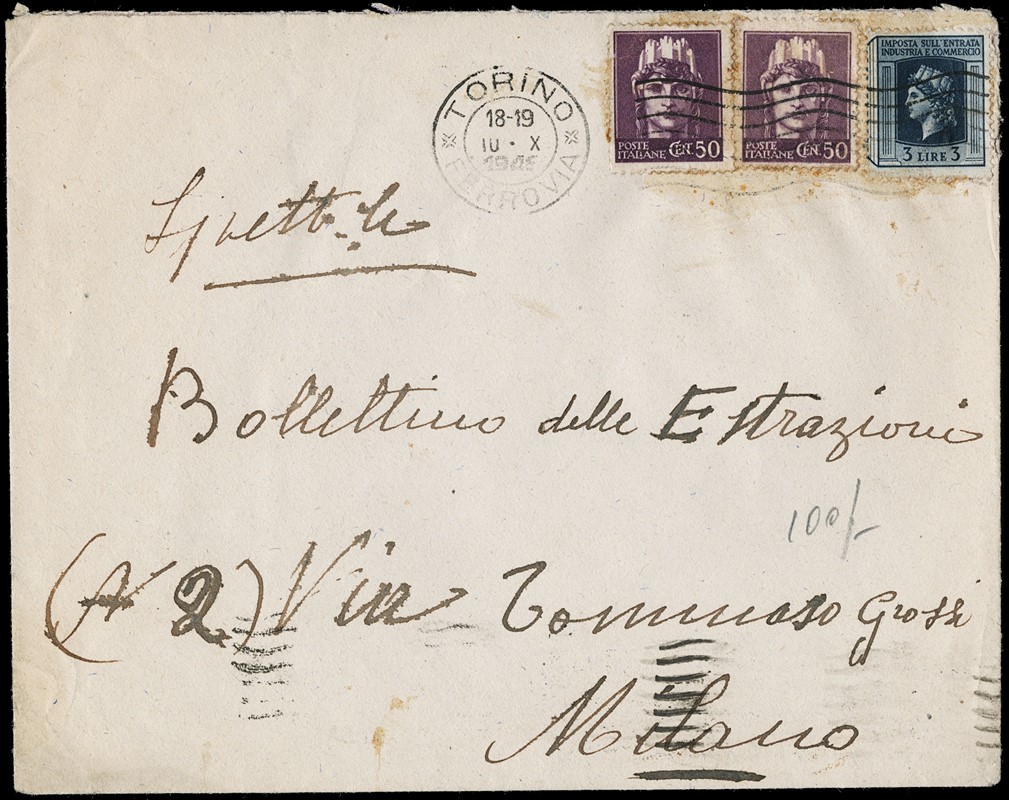 TORINO
18-19
10 · X
1945
FERROVIA
POSTE ITALIANE CENT. 50
POSTE ITALIANE CENT. 50
IMPOSTA SULL'ENTRATA
INDUSTRIA E COMMERCIO
3 LIRE 3
Spett.le
Bollettino delle Estrazioni
100/-
2) Via Tommaso Grossi
Milano